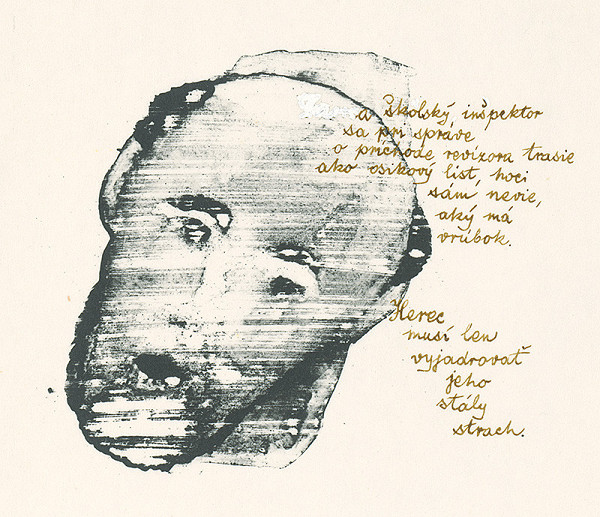 a školský inšpektor
sa pri správe
o príchode revízora trasie
ako osikový list, hoci
sám nevie,
aký má
vrúbok.
Herec
musí len
vyjadrovať
jeho
stály
strach.